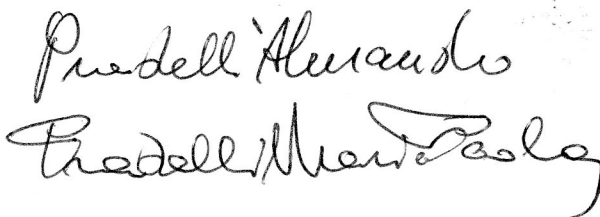 Pradelli Alessandro
Pradelli Maria Paola